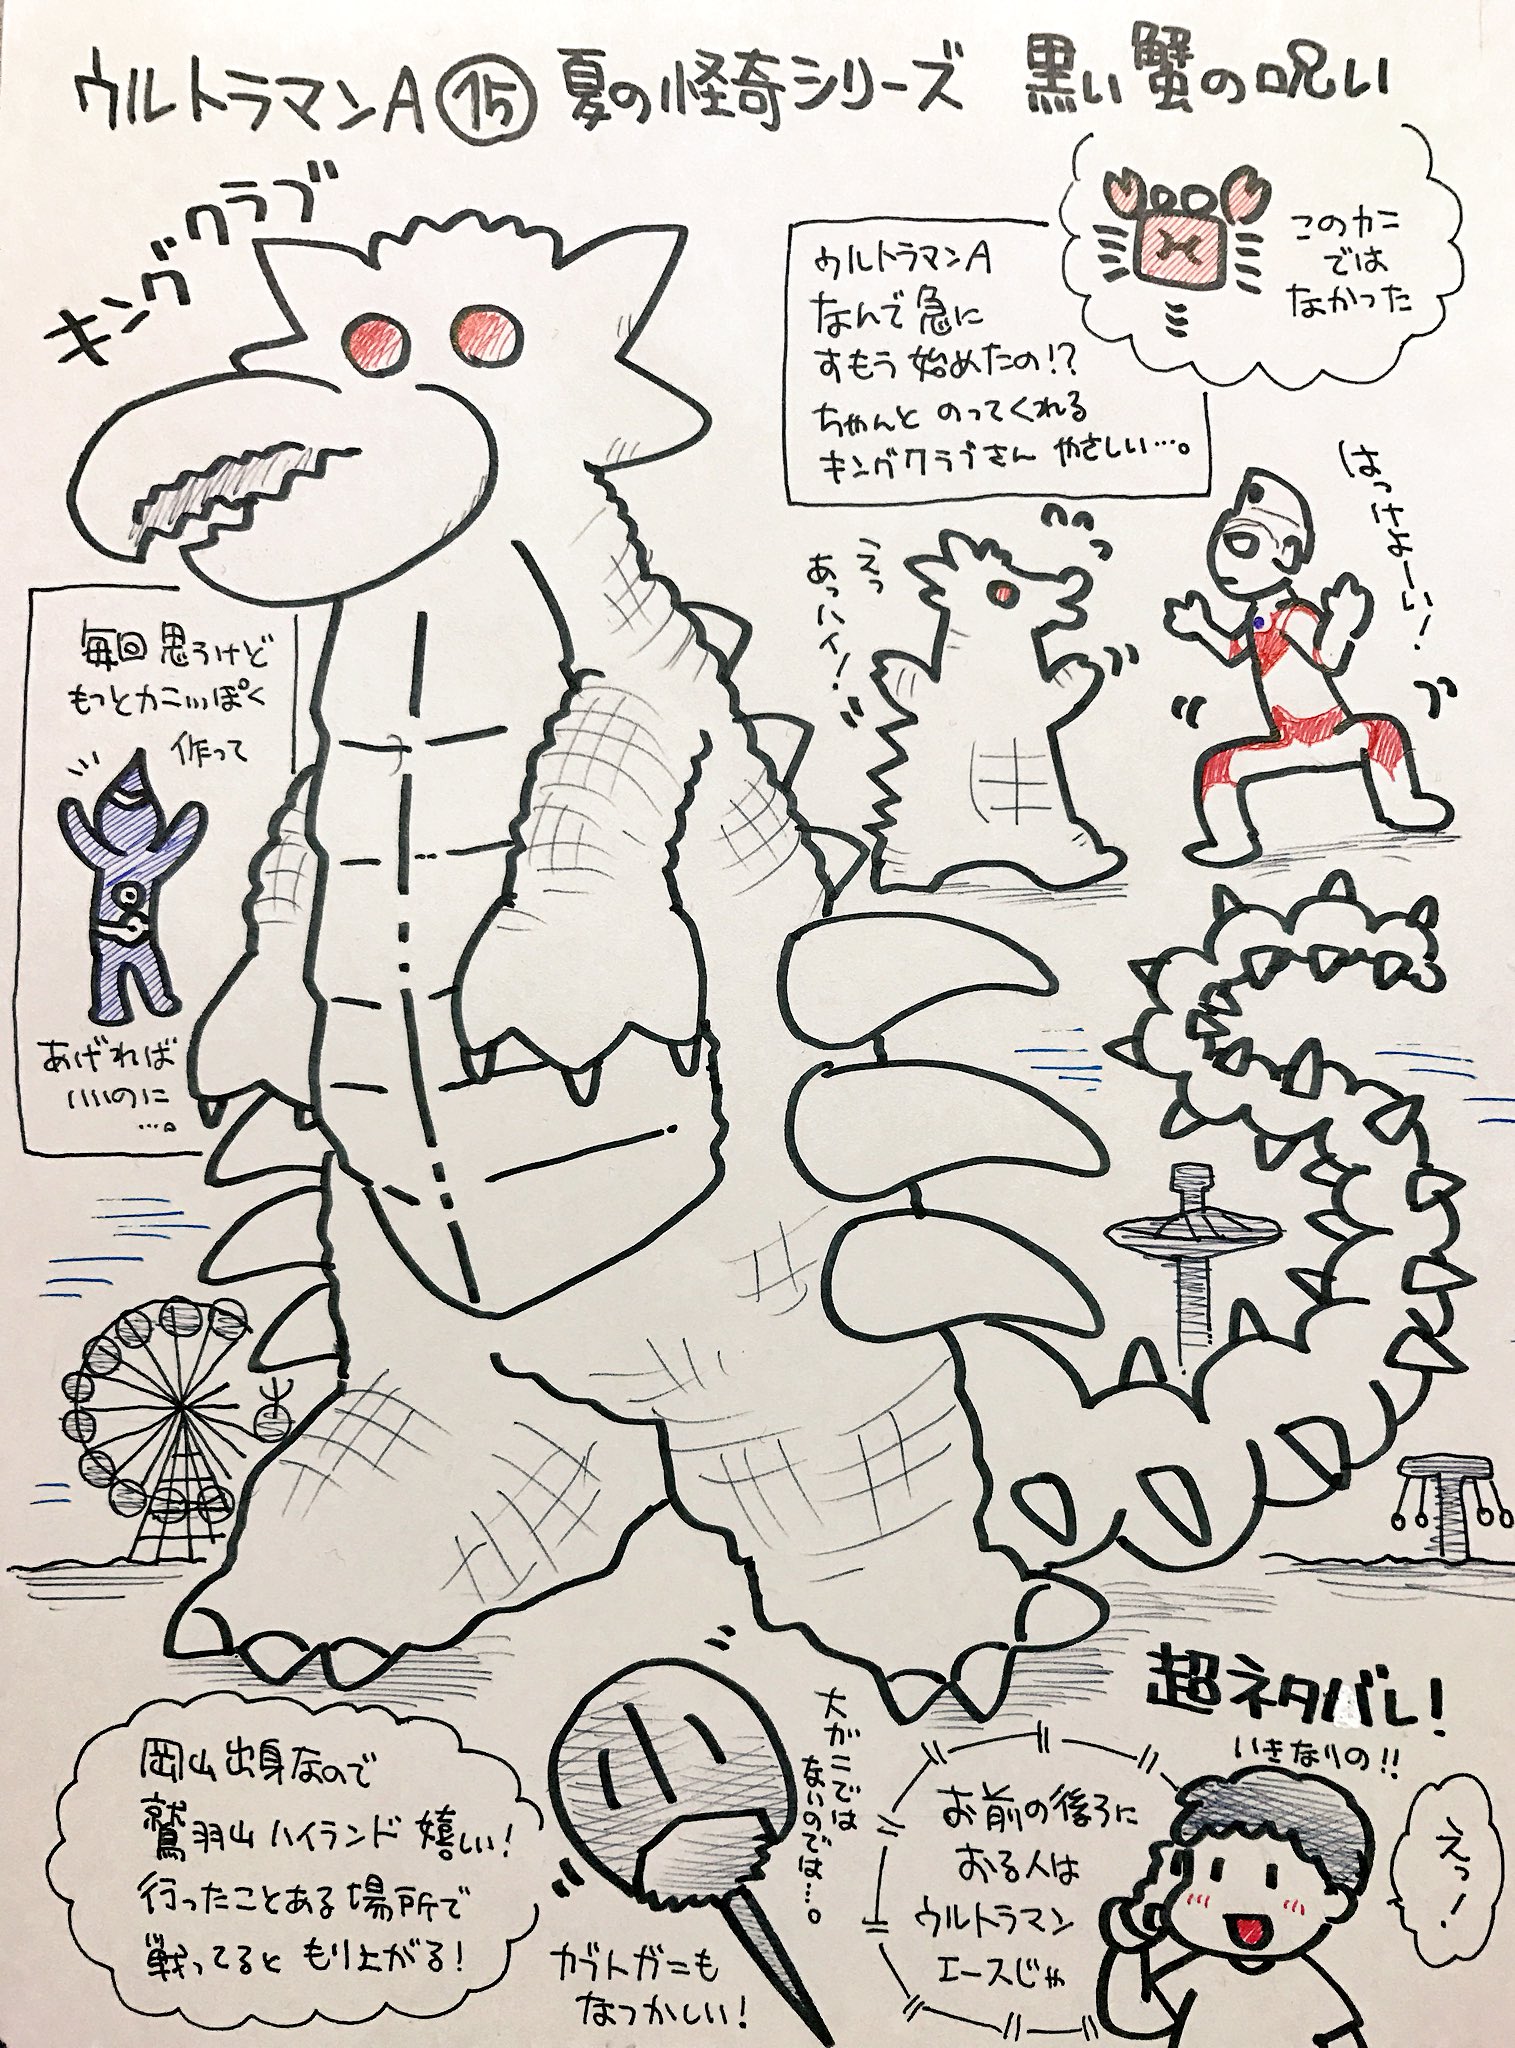 ウルトラマンA ⑮ 夏の怪奇シリーズ 黒い蟹の呪い
キングクラブ
このカニ
では
なかった
ウルトラマンA
なんで急に
すもう始めたの!?
ちゃんとのってくれる
キングクラブさん やさしい…。
はっけよーい!
えっ
あっハイ!
毎回思うけど
もっとカニっぽく
作って
あげれば
いいのに
…。
超ネタバレ!
いきなりの!!
岡山出身なので
鷲羽山ハイランド嬉しい!
行ったことある場所で
戦ってると もり上がる!
大がニでは
ないのでは…。
ガブトガニも
なつかしい!
お前の後ろに
おる人は
ウルトラマン
エースじゃ
えっ!